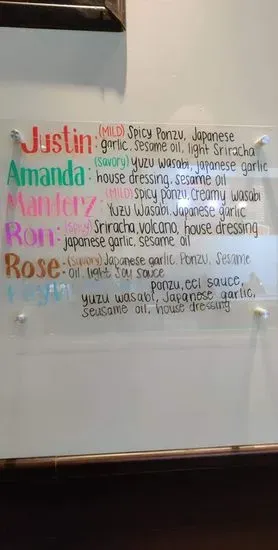 Justin: (MILD) Spicy Ponzu, Japanese
garlic, sesame oil, light Sriracha
Amanda: (savory) yuzu wasabi, japanese garlic
house dressing, sesame oil
Manderz: (MILD) spicy ponzu, creamy wasabi
Yuzu Wasabi, Japanese garlic
Ron: (spicy) Sriracha, volcano, house dressing
japanese garlic, sesame oil
Rose: (savory) Japanese garlic, Ponzu, Sesame
oil, light soy sauce
ponzu, eel sauce,
yuzu wasabi, Japanese garlic,
seusame oil, house dressing